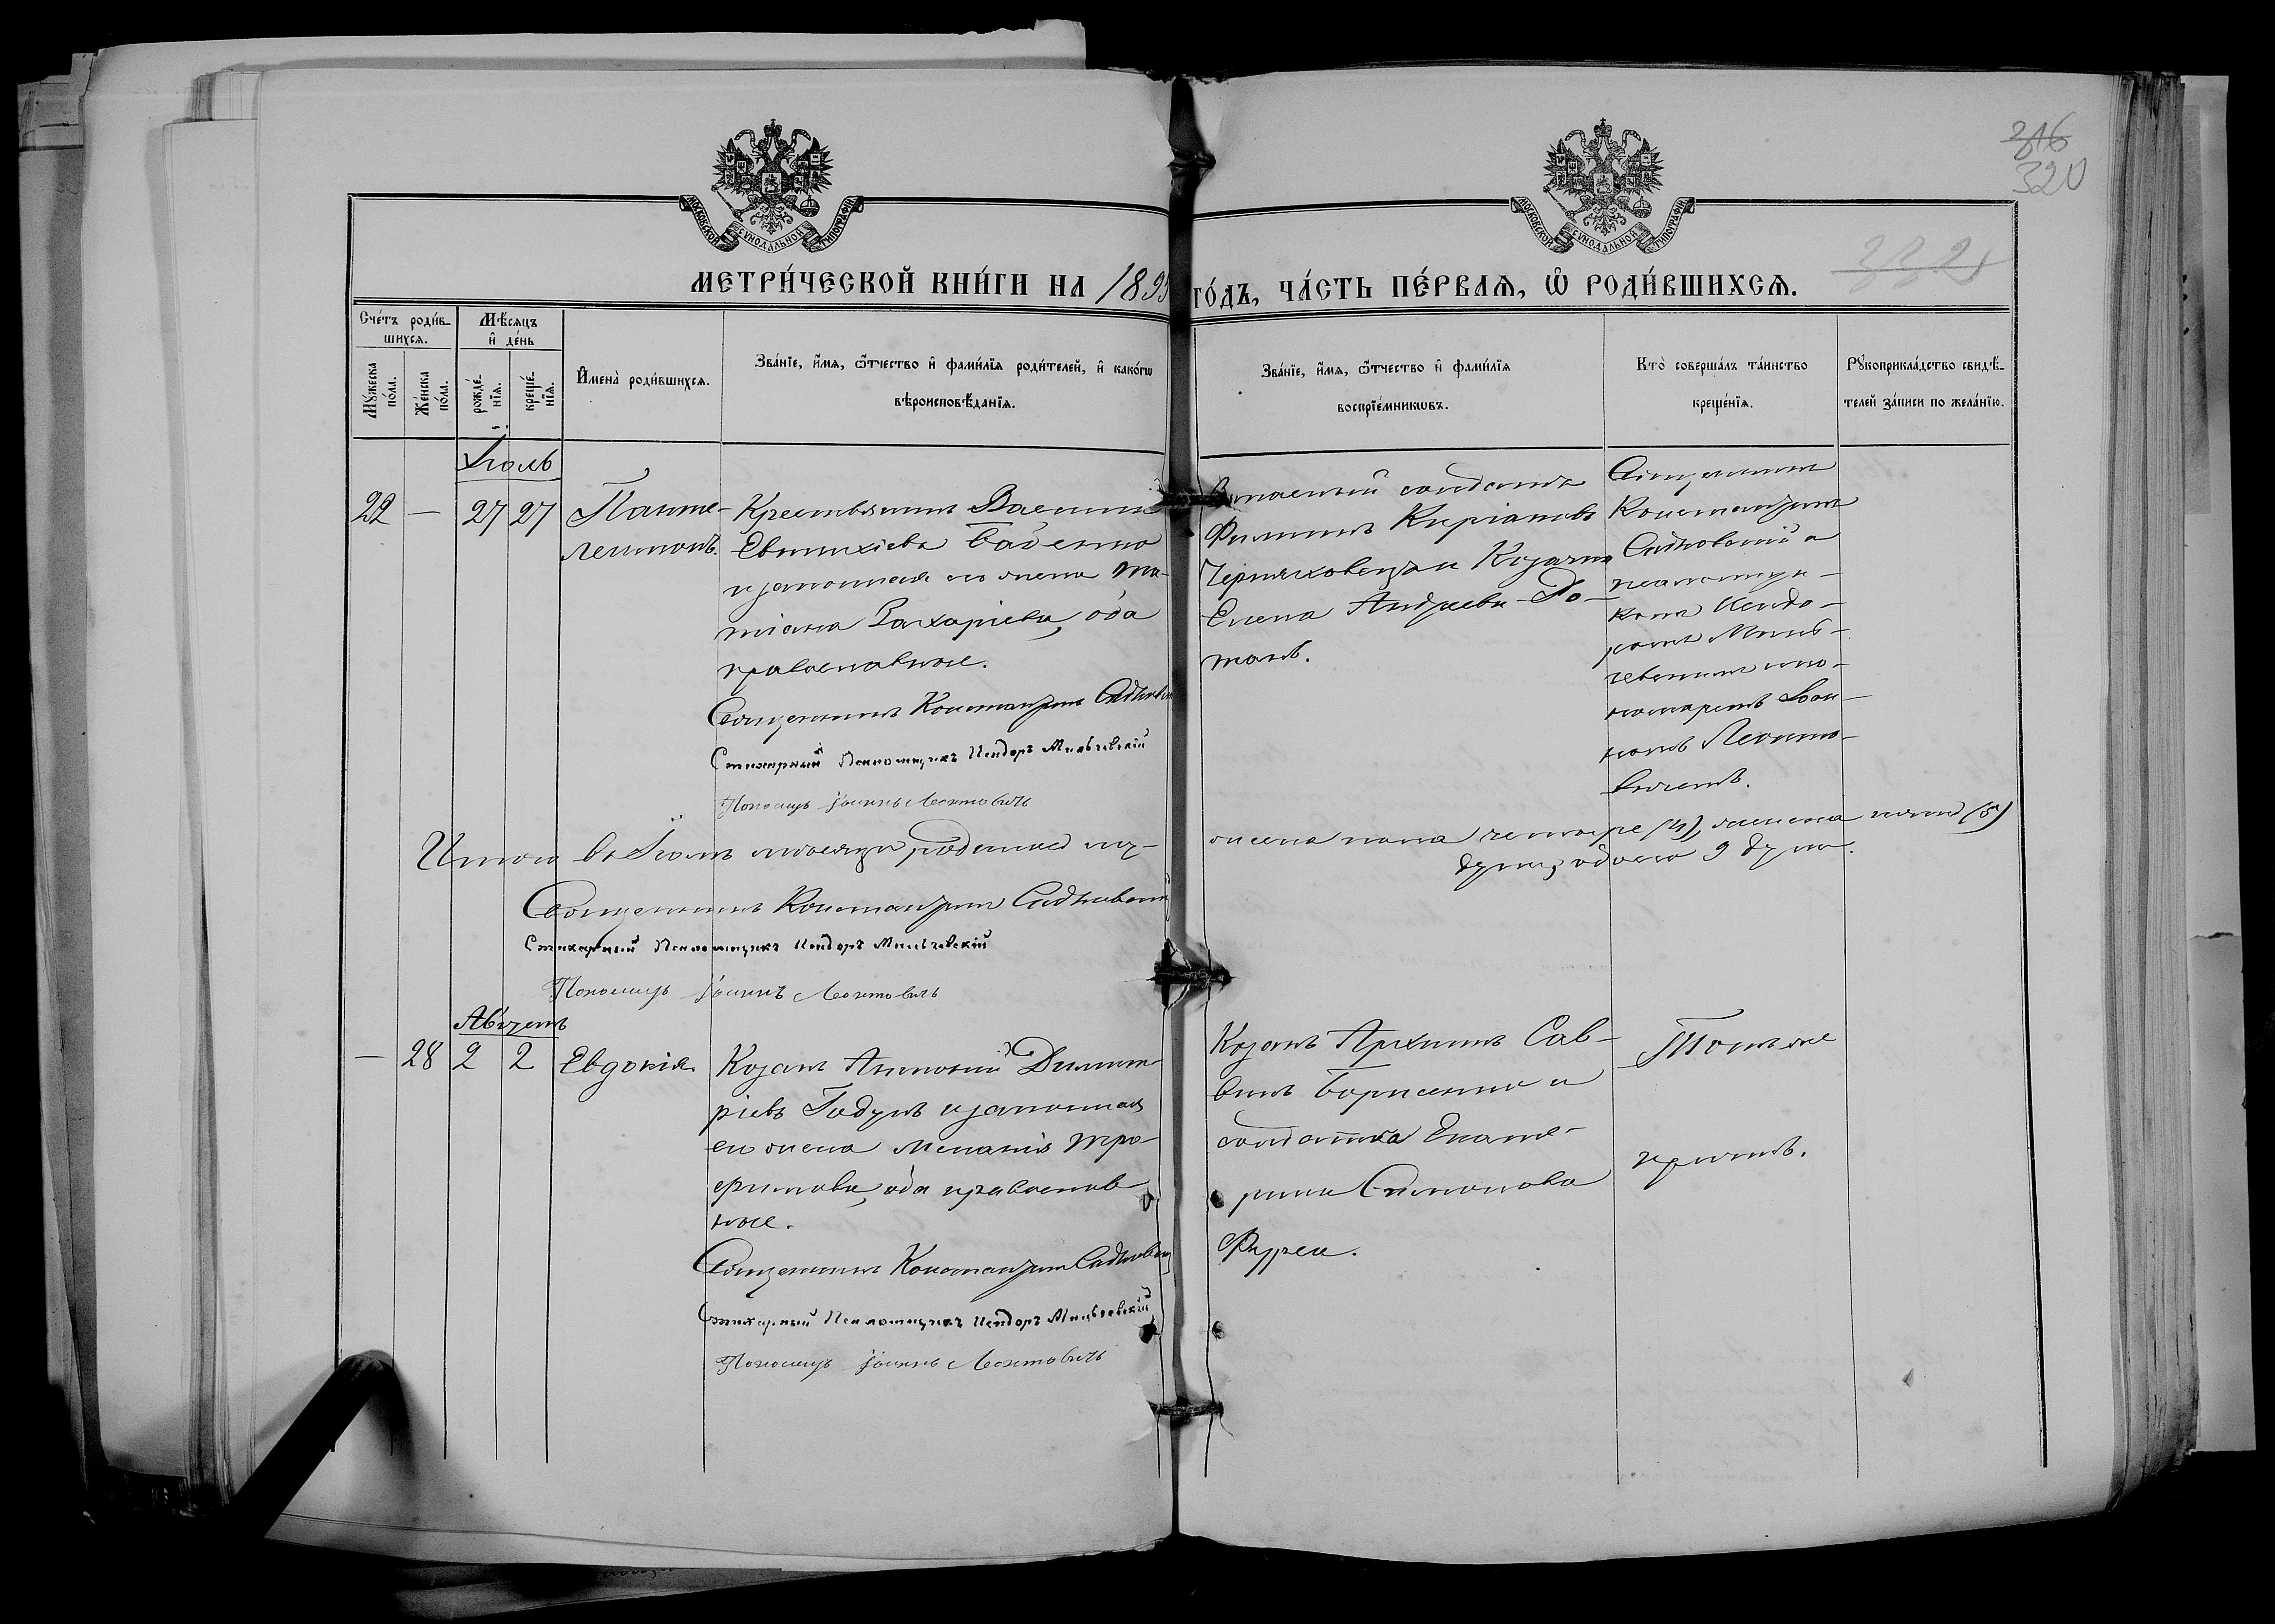 316
320
МОСКОВСКОЙ СѴНОДАЛЬНОЙ ТИПОГРАФІИ
МОСКОВСКОЙ СѴНОДАЛЬНОЙ ТИПОГРАФІИ
МЕТРИ́ЧЕСКОЙ КНИ́ГИ НА 1895 ГО́ДЪ, ЧА́СТЬ ПЕ́РВАѦ, Ѡ҆ РОДИ́ВШИХСѦ.
Сче́тъ роди́в-
шихсѧ.
Мѣ́сѧцъ
и҆ де́нь
Мꙋ́жеска по́ла.
Же́нска по́ла.
рожде́-
нїѧ.
креще́-
нїѧ.
И҆мена̀ роди́вшихсѧ.
Зва́нїе, и҆́мѧ, ѻ҆́тчество и҆ фами́лїѧ роди́телей, и҆ како́гѡ
вѣроисповѣ́данїѧ.
Зва́нїе, и҆́мѧ, ѻ҆́тчество и҆ фами́лїѧ
воспрїе́мникѡвъ.
Кто̀ соверша́лъ та́инство
креще́нїѧ.
Рꙋкоприкла́дство свидѣ́-
телей за́писи по жела́нїю.
Іюль
22 — 27 27
Панте-
леимонъ.
Крестьянинъ Василій
Евтихіевъ Баденко
и законная его жена Та-
тіана Захаріева, оба
православные.
Священникъ Константинъ
Стихарный Псаломщикъ Исидоръ Мильчевскій
Пономарь Іоаннъ Леонтовичъ
солдатъ
Филиппъ Кипріановъ
Черняховецъ и Козачка
Елена Андреева До-
Священникъ
Константинъ
псаломщи-
комъ Исидо-
ромъ Миль-
чевскимъ и по-
номаремъ Іоан-
номъ Леонто-
вичемъ.
Итого въ Іюлѣ мѣсяцѣ родилось му-
жеска пола четыре (4), женска пять (5)
душъ, обоего 9 душъ.
Священникъ Константинъ
Стихарный Псаломщикъ Исидоръ Мильчевскій
Пономарь Іоаннъ Леонтовичъ
Августъ
— 28 2 2
Евдокія
Козакъ Антоній Димит-
ріевъ Годунъ и законная
его жена Меланія Тро-
фимова, оба православ-
ные.
Священникъ Константинъ
Стихарный Псаломщикъ Исидоръ Мильчевскій
Пономарь Іоаннъ Леонтовичъ
Козакъ Архипъ Сав-
винъ Борисенко и
солдатка Екате-
рина Симонова
Тотъ же
причтъ.